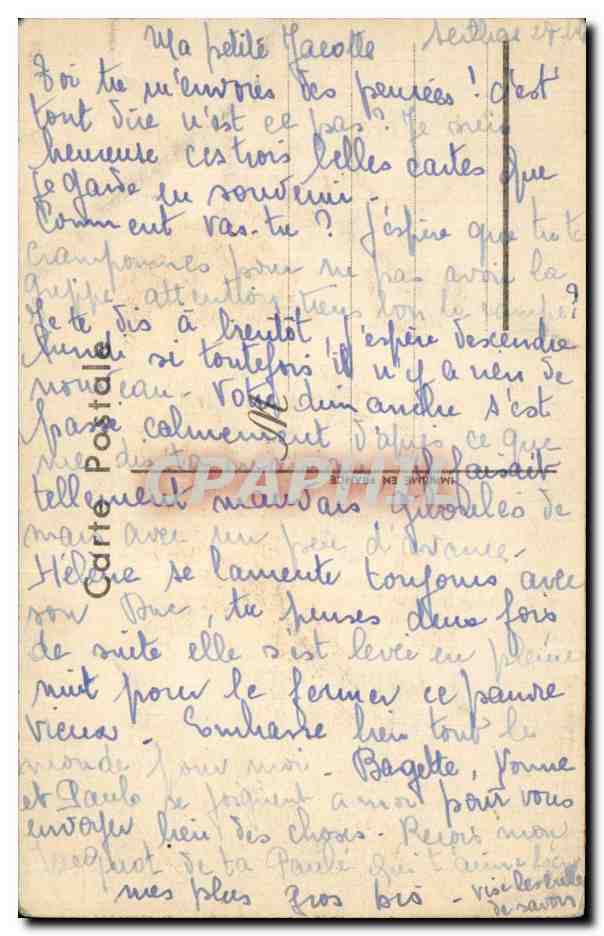 Ma petite Jacotte
Toi tu m'envoies des pensées ! c'est
tout dire n'est ce pas ? Je suis
heureuse ces trois belles cartes que
je garde en souvenir.
Comment vas-tu ? J'espère que tu te
cramponnes pour ne pas avoir la
grippe attention tiens bon la rampe ?
Je te dis à bientôt j'espère descendre
lundi si toutefois il n'y a rien de
nouveau. Votre dimanche s'est
passé calmement d'après ce que
me dis il faisait
tellement mauvais
main avec un d'avance.
Hélène se lamente toujours avec
son Duc, tu penses deux fois
de suite elle s'est levée en pleine
nuit pour le fermer ce pauvre
vieux. Embrasse bien tout le
monde pour moi. Bagette, Yonne
et Paulo se joignent a moi pour vous
envoyer bien des choses. Reçois mon
de ta Paule qui t'aime bien
mes plus gros bis -
de savon
Carte Postale
M
CPARHIL
IMPRIMÉ EN FRANCE